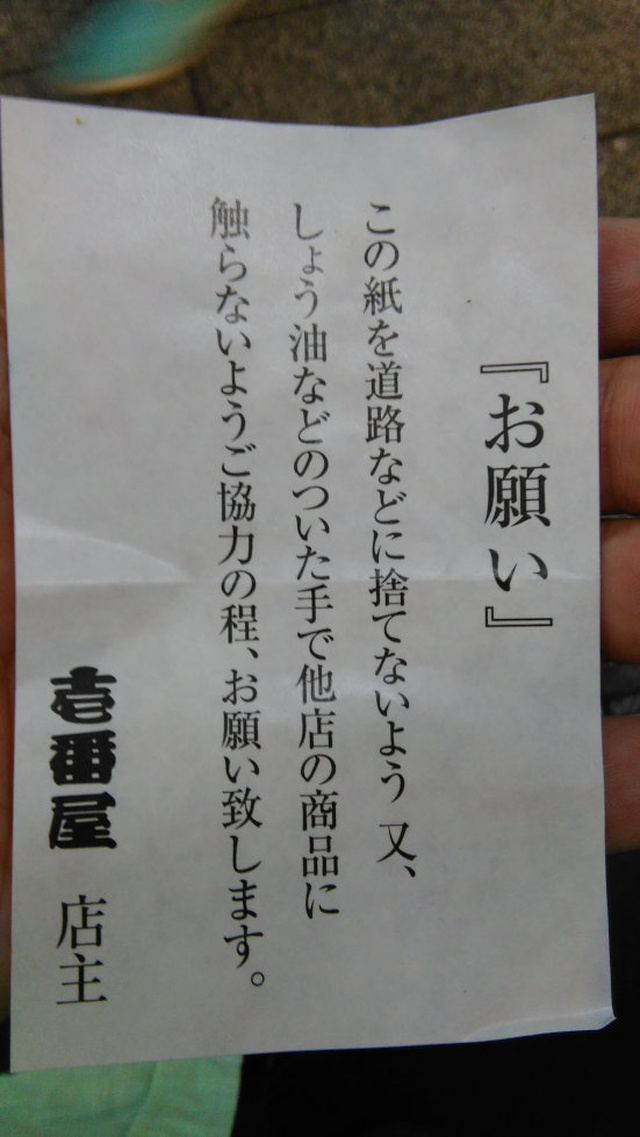 『お願い』
この紙を道路などに捨てないよう 又、
しょう油などのついた手で他店の商品に
触らないようご協力の程、お願い致します。
壱番屋 店主